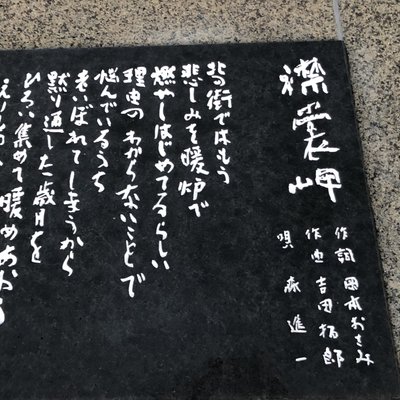 襟裳岬
作詞 岡本おさみ
作曲 吉田拓郎
唄 森進一
北の街ではもう
悲しみを暖炉で
燃やしはじめてるらしい
理由のわからないことで
悩んでいるうち
老いぼれてしまうから
黙り通した歳月を
ひろい集めて暖めあおう